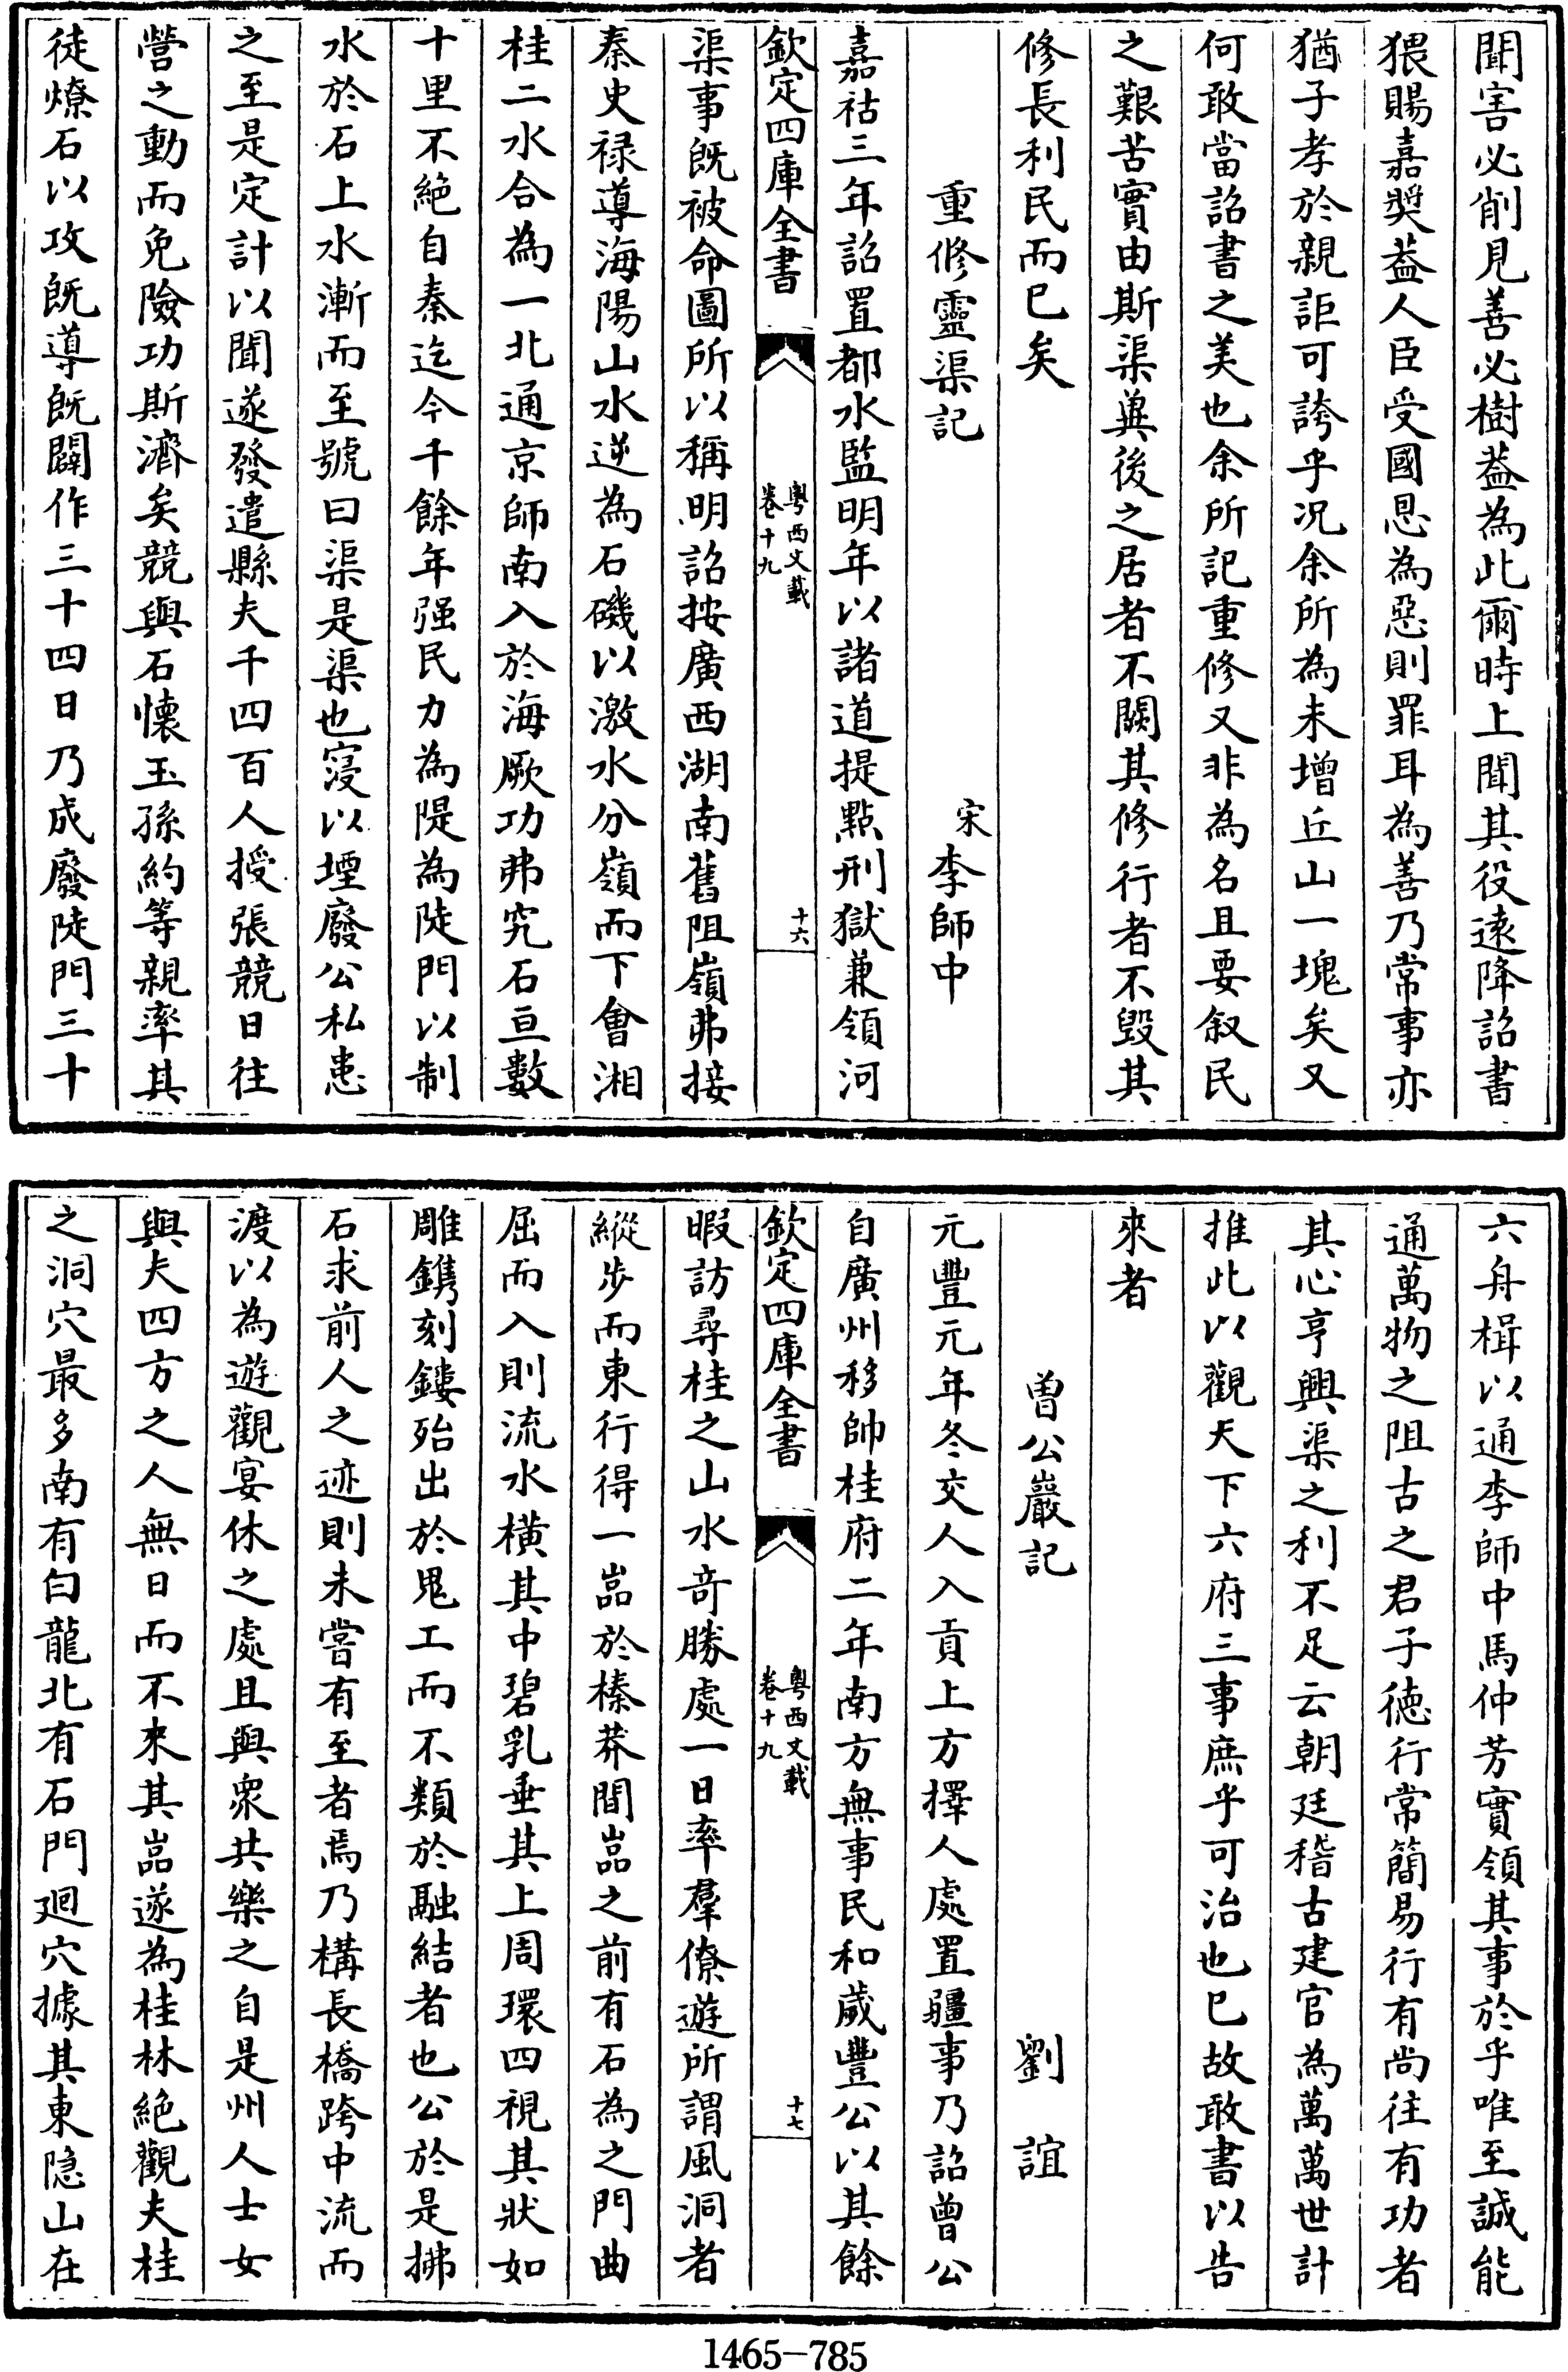 聞害必削見善必樹葢為此爾時上聞其役遠降詔書
猥賜嘉奬葢人臣受國恩為惡則罪耳為善乃常事亦
猶子孝於親詎可誇乎况余所為未增丘山一塊矣又
何敢當詔書之美也余所記重修又非為名且要叙民
之艱苦實由斯渠兾後之居者不闕其修行者不毀其
修長利民而已矣
重修靈渠記
宋李師中
嘉祜三年詔置都水監明年以諸道提點刑獄兼領河
欽定四庫全書
粤西文載
卷十九
十六
渠事既被命圖所以稱明詔按廣西湖南舊阻嶺弗接
秦史禄導海陽山水逆為石磯以激水分嶺而下會湘
桂二水合為一北通京師南入於海厥功弗究石亘數
十里不絶自秦迄今千餘年强民力為隄為陡門以制
水於石上水漸而至號曰渠是渠也寖以堙廢公私患
之至是定計以聞遂發遣縣夫千四百人授張競日往
營之動而免險功斯濟矣競與石懷玉孫約等親率其
徒燎石以攻既導既闢作三十四日乃成廢陡門三十
六舟楫以通李師中馬仲芳實領其事於乎唯至誠能
通萬物之阻古之君子徳行常簡易行有尚往有功者
其心亨興渠之利不足云朝廷稽古建官為萬萬世計
推此以觀天下六府三事庶乎可治也已故敢書以告
來者
曽公巖記
劉誼
元豐元年冬交人入貢上方擇人處置疆事乃詔曽公
自廣州移帥桂府二年南方無事民和歲豐公以其餘
欽定四庫全書
粤西文載
卷十九
十七
暇訪尋桂之山水竒勝處一日率羣僚遊所謂風洞者
縱步而東行得一嵓於榛莽間嵓之前有石為之門曲
屈而入則流水横其中碧乳垂其上周環四視其狀如
雕鐫刻鏤殆出於鬼工而不類於融結者也公於是拂
石求前人之迹則未嘗有至者焉乃構長橋跨中流而
渡以為遊觀宴休之處且與衆共樂之自是州人士女
與夫四方之人無日而不來其嵓遂為桂林絶觀夫桂
之洞穴最多南有白龍北有石門廻穴據其東隠山在
1465-785